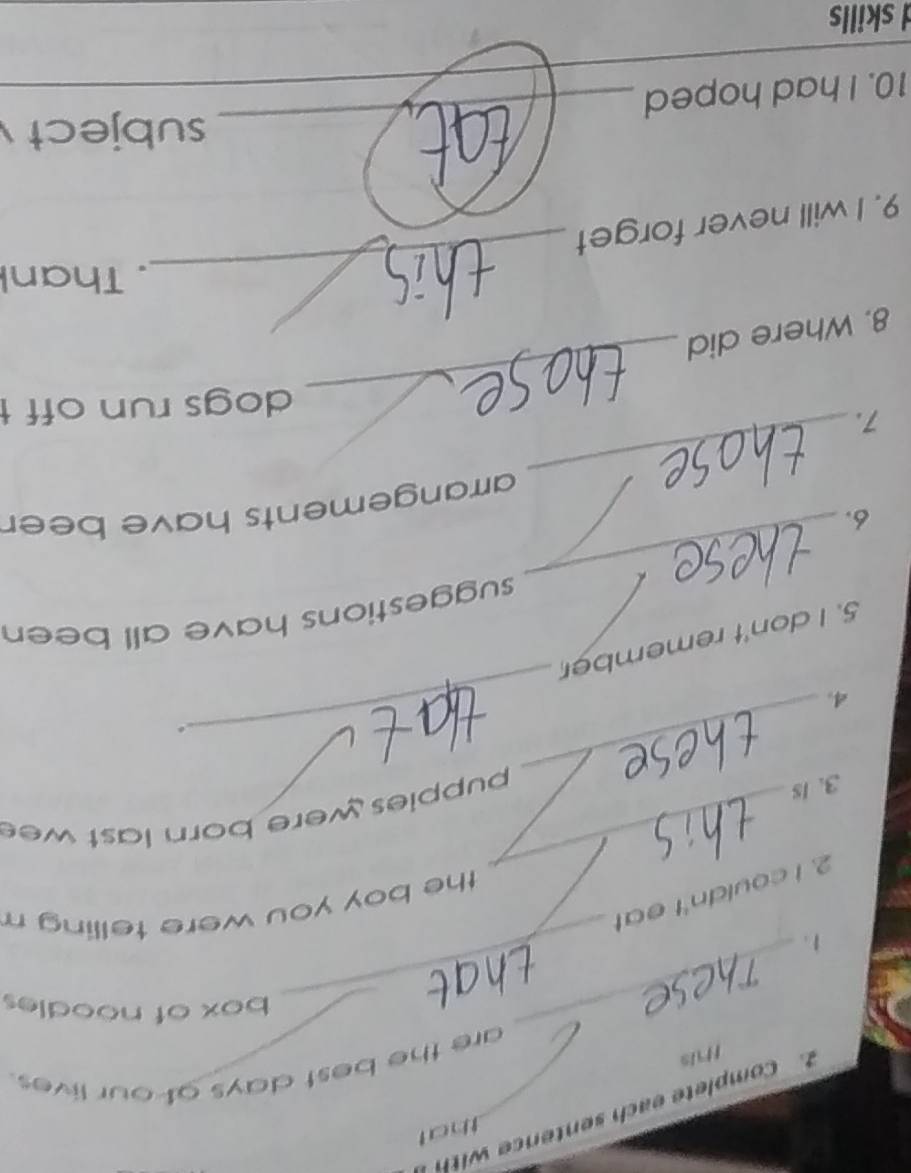 2. Complete each sentence with
this that
1. These are the best days of our lives.
2. I couldn't eat that box of noodles
3. Is this the boy you were telling
4. these puppies were born last
5. I don't remember that.
6. these suggestions have all been
7. those arrangements have
8. Where did those dogs run off
9. I will never forget this. Thank
10. I had hoped subject
skills